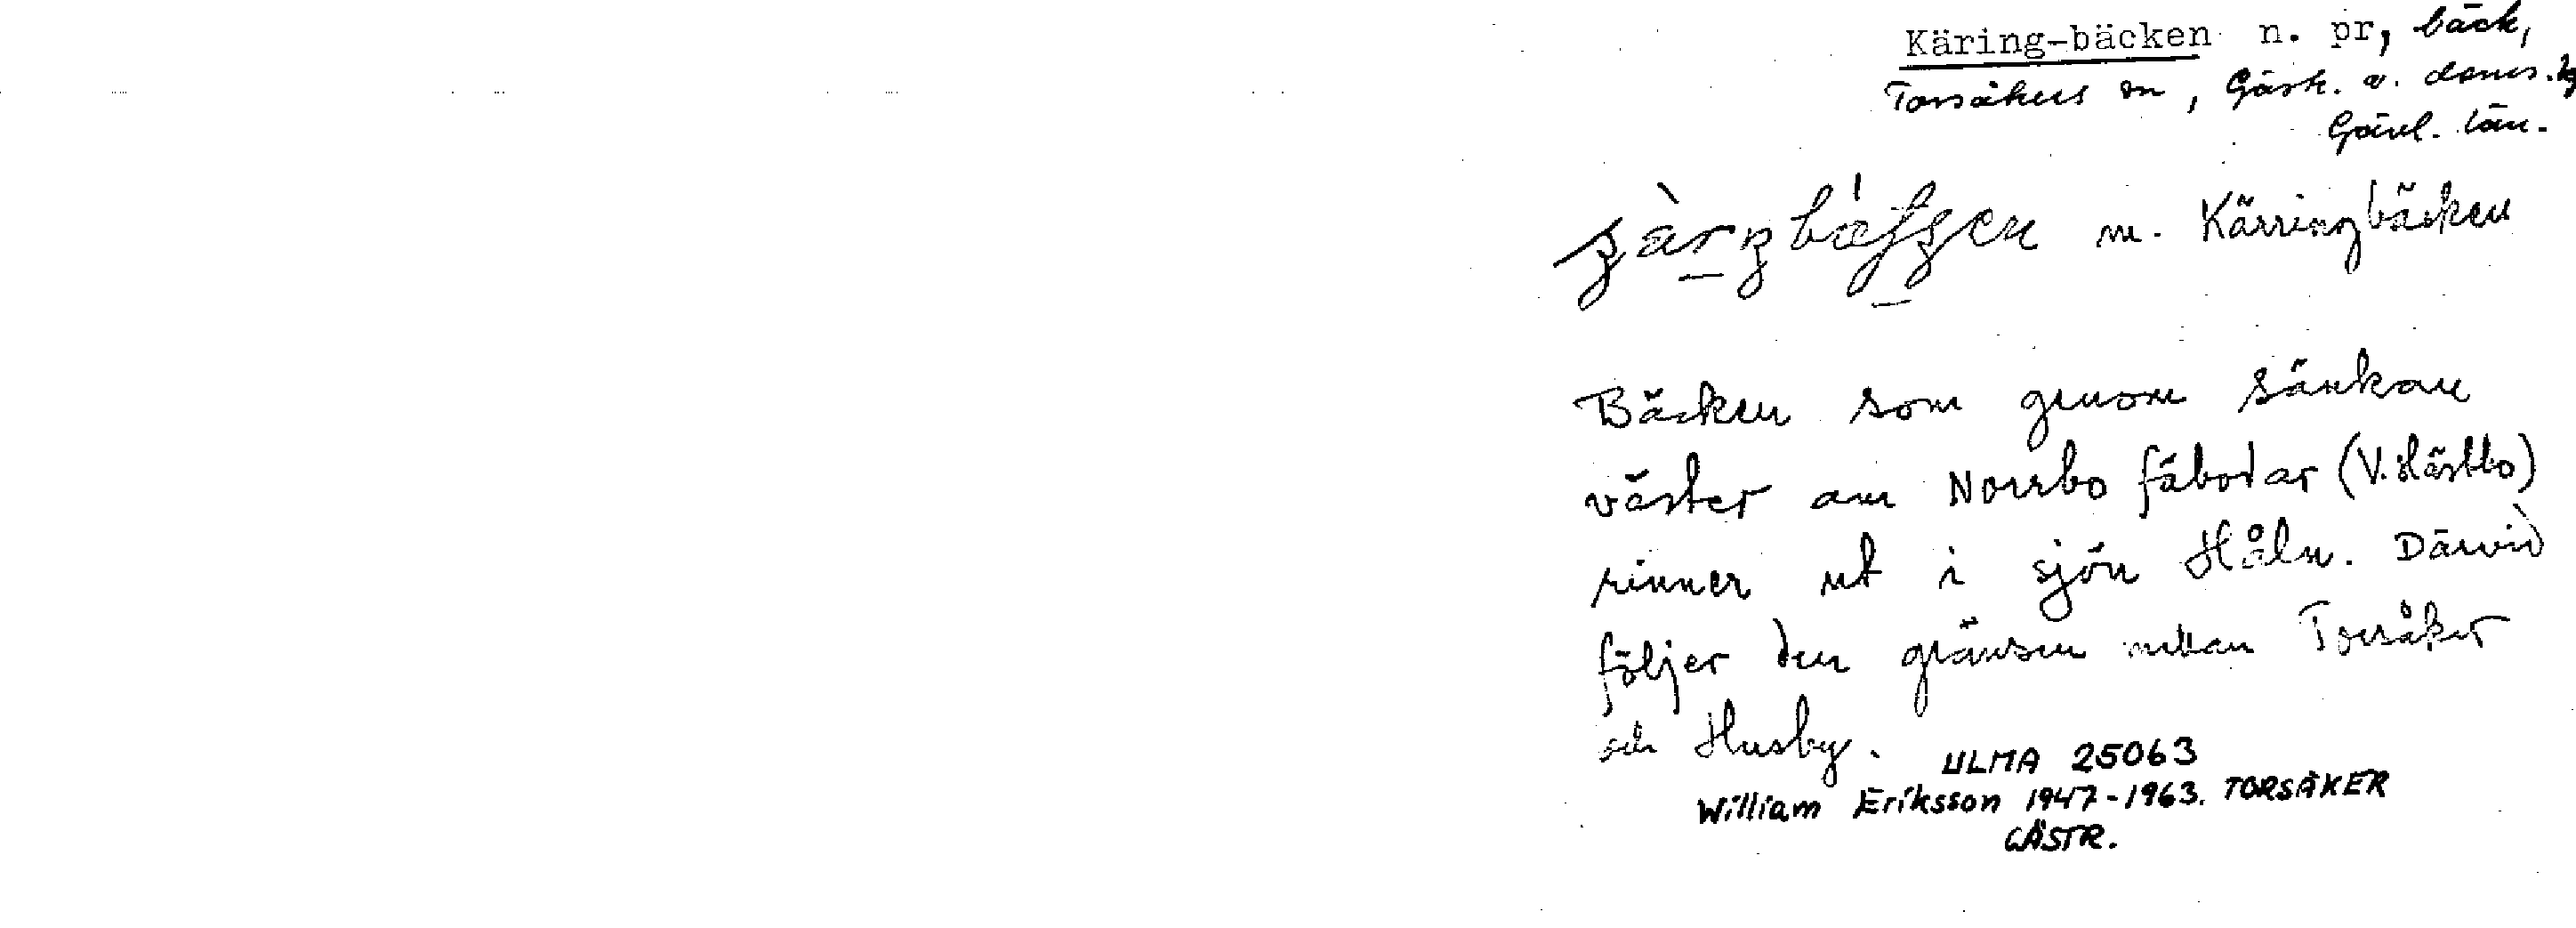 Käring-bäcken n. pr, bäck,
Torsåkers sn, Gästr. ö. doms.
Gävl. län.
m. Kärringbäcken
Bäcken som genom sänkan
väster om Norrbo fäbodar (V. Hästbo)
rinner ut i sjön Håln. Därvid
följer den gränsen mellan Torsåker
och Husby.
ULMA 25063
William Eriksson 1947-1963. TORSÅKER
GÄSTR.